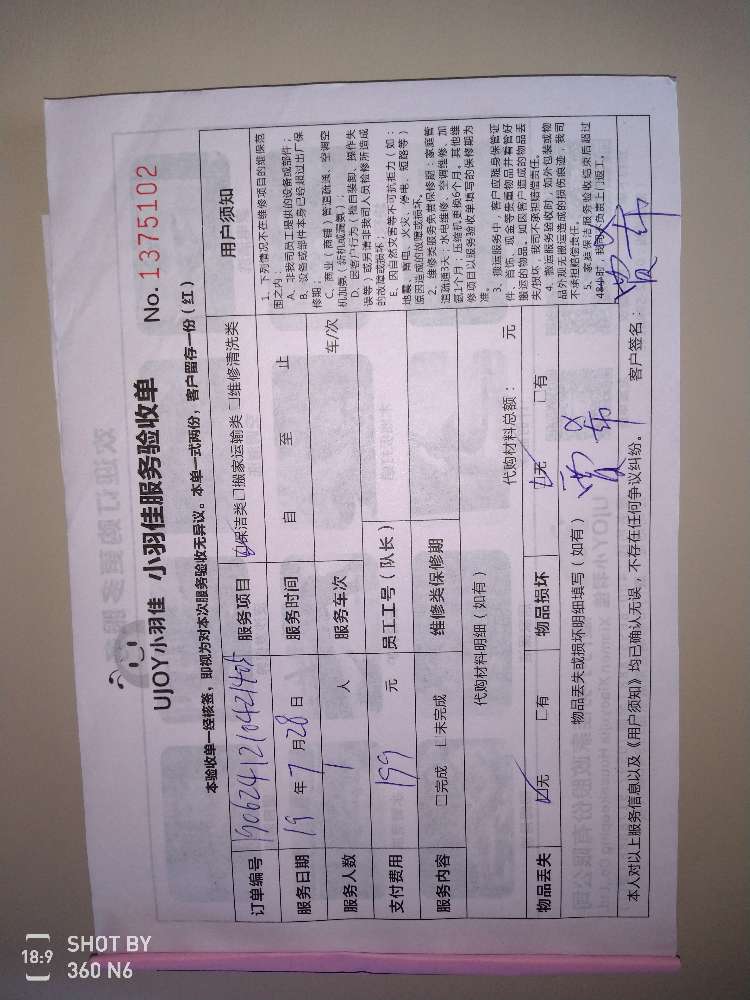 UJOY小羽佳 小羽佳服务验收单
No. 1375102
本验收单一经核签，即视为对本次服务验收无异议。本单一式两份，客户留存一份（红）
订单编号 服务项目 保洁类 □搬家运输类 □维修清洗类
服务日期 19 年 7 月 28 日 服务时间 自 至 止
服务人数 1 人 服务车次 车/次
支付费用 199 元 员工工号（队长）
服务内容 □完成 □未完成 维修类保修期
代购材料明细（如有） 代购材料总额： 元
物品丢失 ☑无 □有 物品损坏 ☑无 □有
物品丢失或损坏明细填写（如有）
用户须知
1、下列情况不在维修项目的维保范
围之内：
A、非我司员工提供的设备或部件；
B、设备或部件本身已经超过出厂保
修期；
C、商业（商铺）管道疏浚、空调空
机加氨（拆机或漏氨）；
D、因客户行为（擅自装卸、操作失
误等）或另请非我司人员检修所造成
的故障或损坏；
E、因自然灾害等不可抗拒力（如：
地震、雷电、水灾、火灾、停电、短路等）
原因造成的故障或损坏。
2、维修类服务免费保修期：家庭管
道疏通3天；水电维修、空调维修、加
氨1个月；压缩机更换6个月。其他维
修项目以服务验收单填写的保修期为
准。
3、搬运服务中，客户应随身保管证
件、首饰、现金等贵重物品并看管好
搬运的物品。如因客户造成的物品丢
失/损坏，我司不承担赔偿责任。
4、搬运服务验收时，如外包装或物
品外观无搬运造成的损伤痕迹，我司
不承担赔偿责任。
5、家庭保洁服务验收结束后超过
48小时，我司不负责上门返工。
本人对以上服务信息以及《用户须知》均已确认无误，不存在任何争议纠纷。 客户签名：
SHOT BY
360 N6
18:9